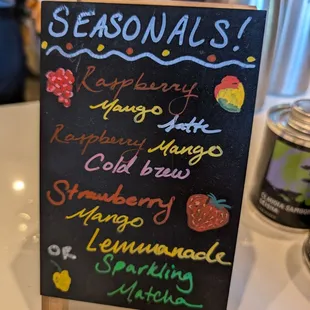 SEASONALS!
Raspberry
Mango
Latte
Raspberry Mango
Cold brew
Strawberry
Mango
Lemmanade
OR
Sparkling
Matcha